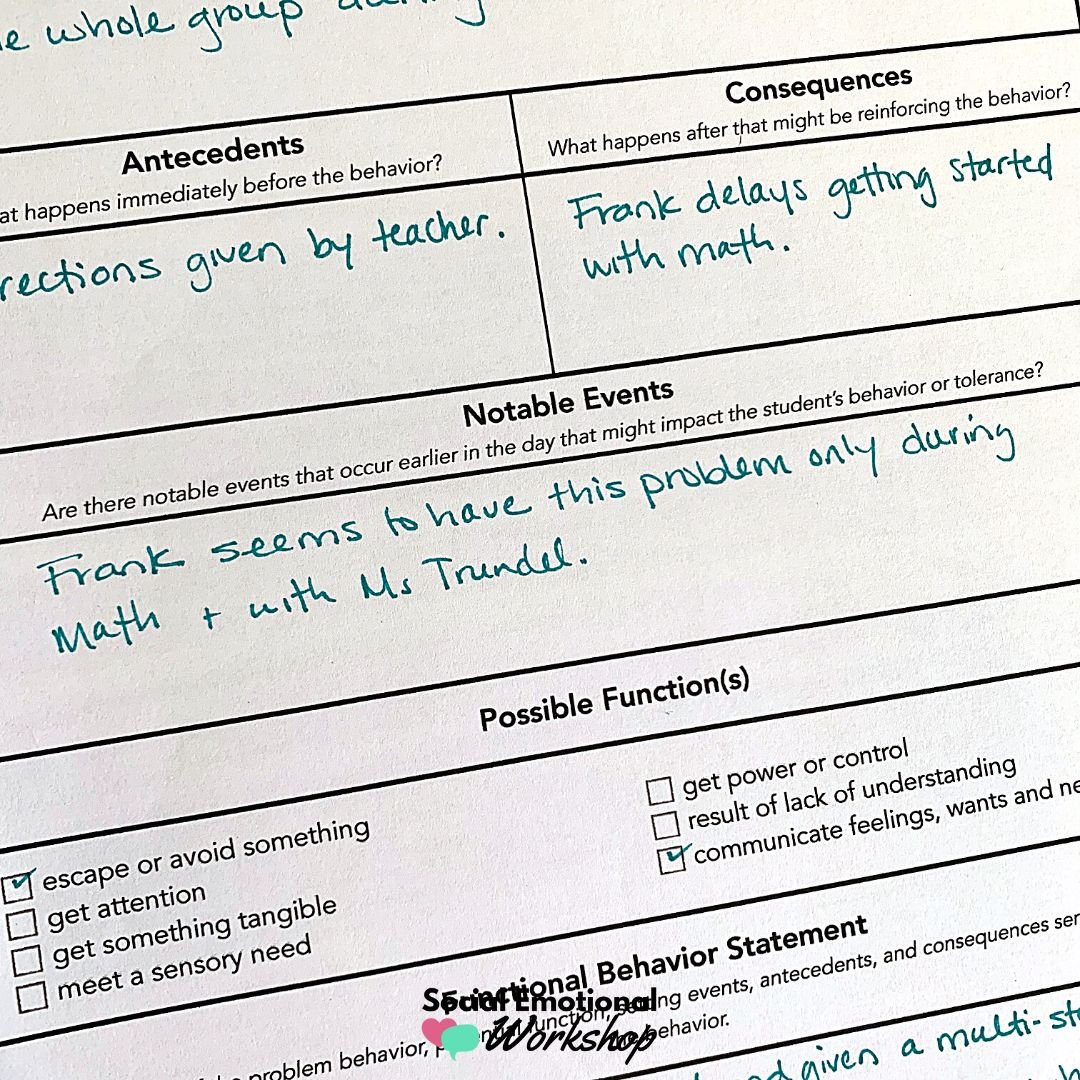 whole group during
Antecedents
happens immediately before the behavior?
given by teacher.
Consequences
What happens after that might be reinforcing the behavior?
Frank delays getting started
with math.
Notable Events
Are there notable events that occur earlier in the day that might impact the student's behavior or tolerance?
Frank seems to have this problem only during
Math + with Ms Trundel.
Possible Function(s)
escape or avoid something
get attention
get something tangible
meet a sensory need
get power or control
result of lack of understanding
communicate feelings, wants and
Functional Behavior Statement
events, antecedents, and consequences
problem behavior, function, behavior.
given a multi-
Social Emotional
Workshop